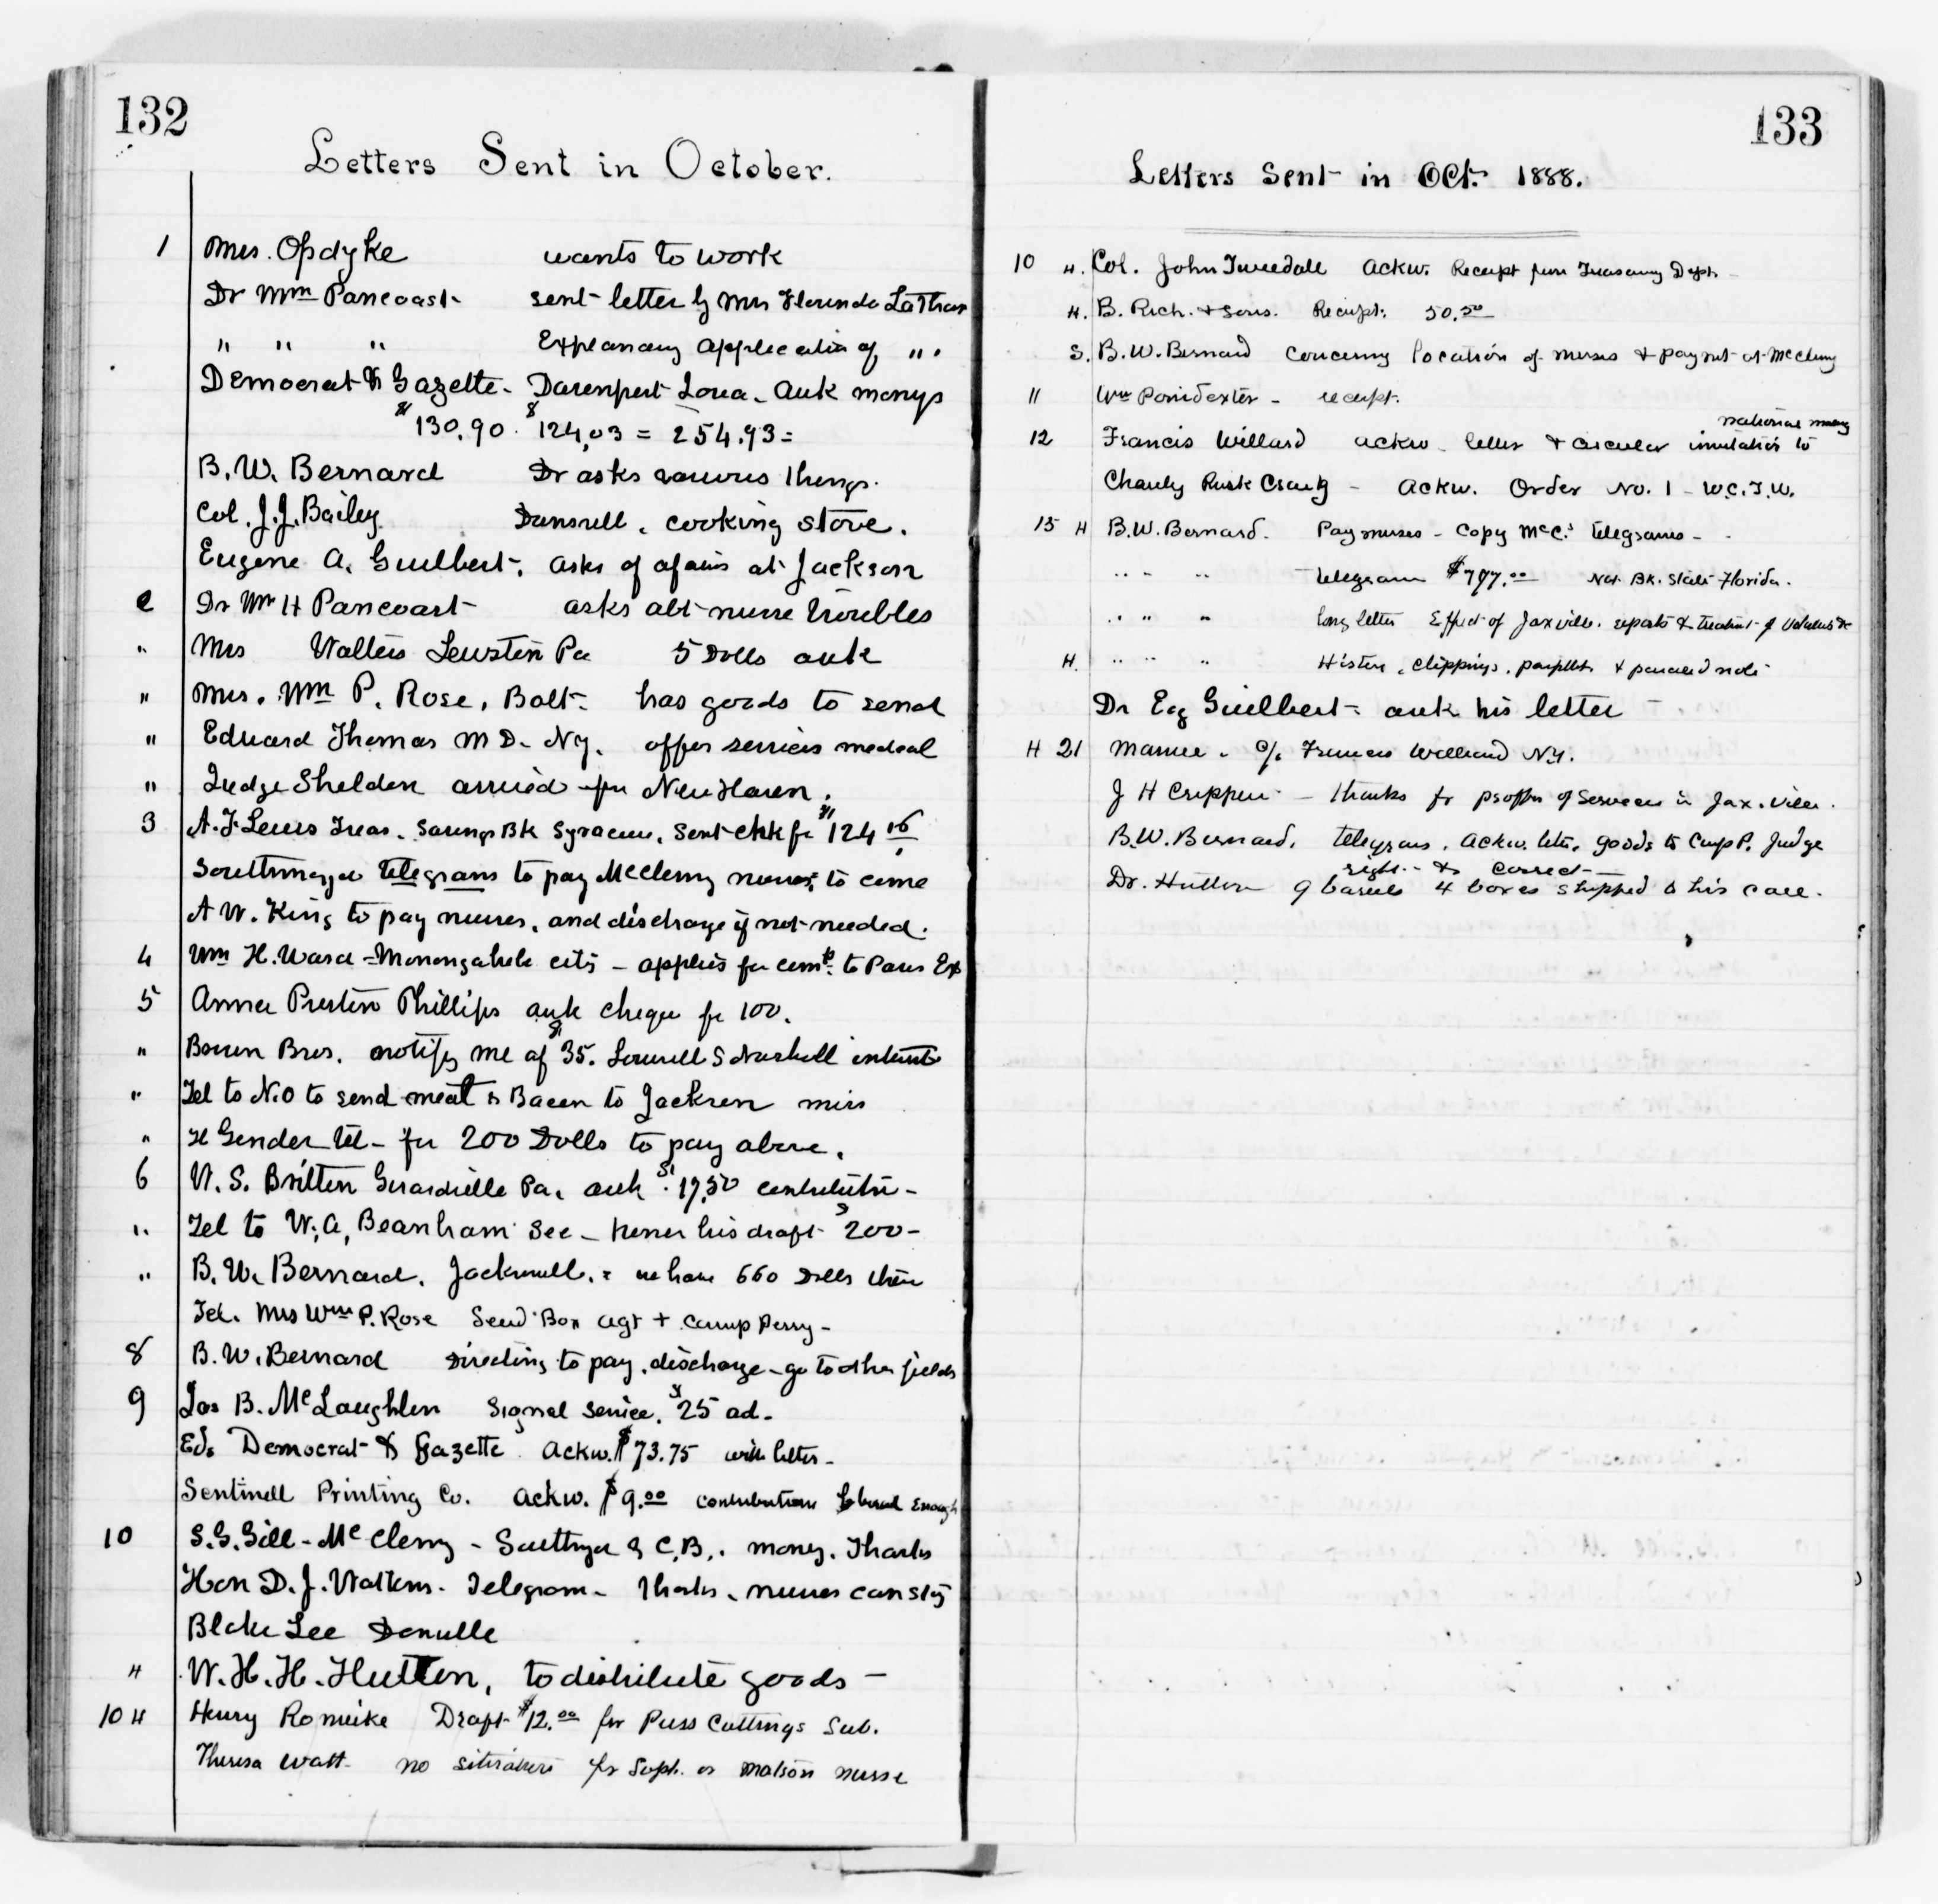 132
Letters Sent in October.
1 Mrs. Opdyke wants to work
Dr Wm Pancoast sent letter by Mrs Florinda
" " " application of " "
Democrat & Gazette - Davenport Iowa - ack moneys
$130.90 $124.03 = 254.93 =
B. W. Bernard Dr asks various things.
Col. J. J. Bailey Dansville, cooking stove.
Eugene A. Guilbert, asks of afairs at Jackson
2 Dr Wm H Pancoast asks abt nurse troubles
" Mrs Walters Pa 5 Dolls ack
" Mrs. Wm P. Rose, Balt - has goods to send
" Edward Thomas M D - N.Y. offers services medical
" Judge Sheldon arrived fr New Haven.
3 A. F. Lewis Treas. Savings Bk Syracuse, sent chk fr $124 16
Southmayd telegrams to pay McClenny nurses, to come
A W. King to pay nurses, and discharge if not needed.
4 Wm H. Ward - Monongahela city - applies for to Paris Ex
5 Anna Preston Phillips ack cheque for 100.
" Bros. notify me of $35. Lowell S interest
" Tel to N.O to send meat & Bacon to Jackson miss
" tel - for 200 Dolls to pay above.
6 W. S. Britten Girardville Pa. ack $17.50 contribution -
" Tel to W. A. Beanham Sec - honor his draft $200 -
" B. W. Bernard. we have 660 Dolls there
Tel. Mrs Wm P. Rose Send Box agt + Camp Perry -
8 B. W. Bernard Directing to pay, discharge - go to other fields
9 Jas B. McLaughlen Signal Service. $25 ad -
Eds Democrat & Gazette Ackw. $73.75 with letter -
Sentinell Printing Co. Ackw. $9.00 contributions liberal enough
10 S. G. Gill - McClenny - Southmayd & C.B., money, Thanks
Hon D. J. Watkins - Telegram - thanks, nurses can stay
Blake Lee Danville
" W. H. H. Hutton, to distribute goods -
10 H Henry Romeike Draft $12.00 for Press Cuttings Sub.
Theresa Watt - no situations for Supt. or matron nurse
133
Letters Sent in Oct. 1888.
10 H. Col. John Tweedale Ackw. Receipt from Treasury Dept -
H. B. Rich. & Sons. Receipt. 50.50
S. B. W. Bernard concerning location of nurses & paymt at McClenny
11 Wm Poindexter - receipt.
national
12 Francis Willard ackw - letter & circular invitation to
Ackw. Order No. 1 - W.C.T.U.
15 H B. W. Bernard. Pay nurses - Copy McC's telegrams -
" " " telegram $797.00 Nat. Bk. State Florida.
" " " long letter Effect of Jaxville. reports & treatment of
H. " " " History, clippings,
Dr Eug Guilbert - ack his letter
H 21 Mamie - c/o Frances Willard N.Y.
J H Crippen - thanks for proffer of services in Jax. ville.
B. W. Bernard, telegrams, Ackw. lets. goods to Camp P. Judge
right & correct -
Dr. Hutton 9 barrels 4 boxes shipped to his care.